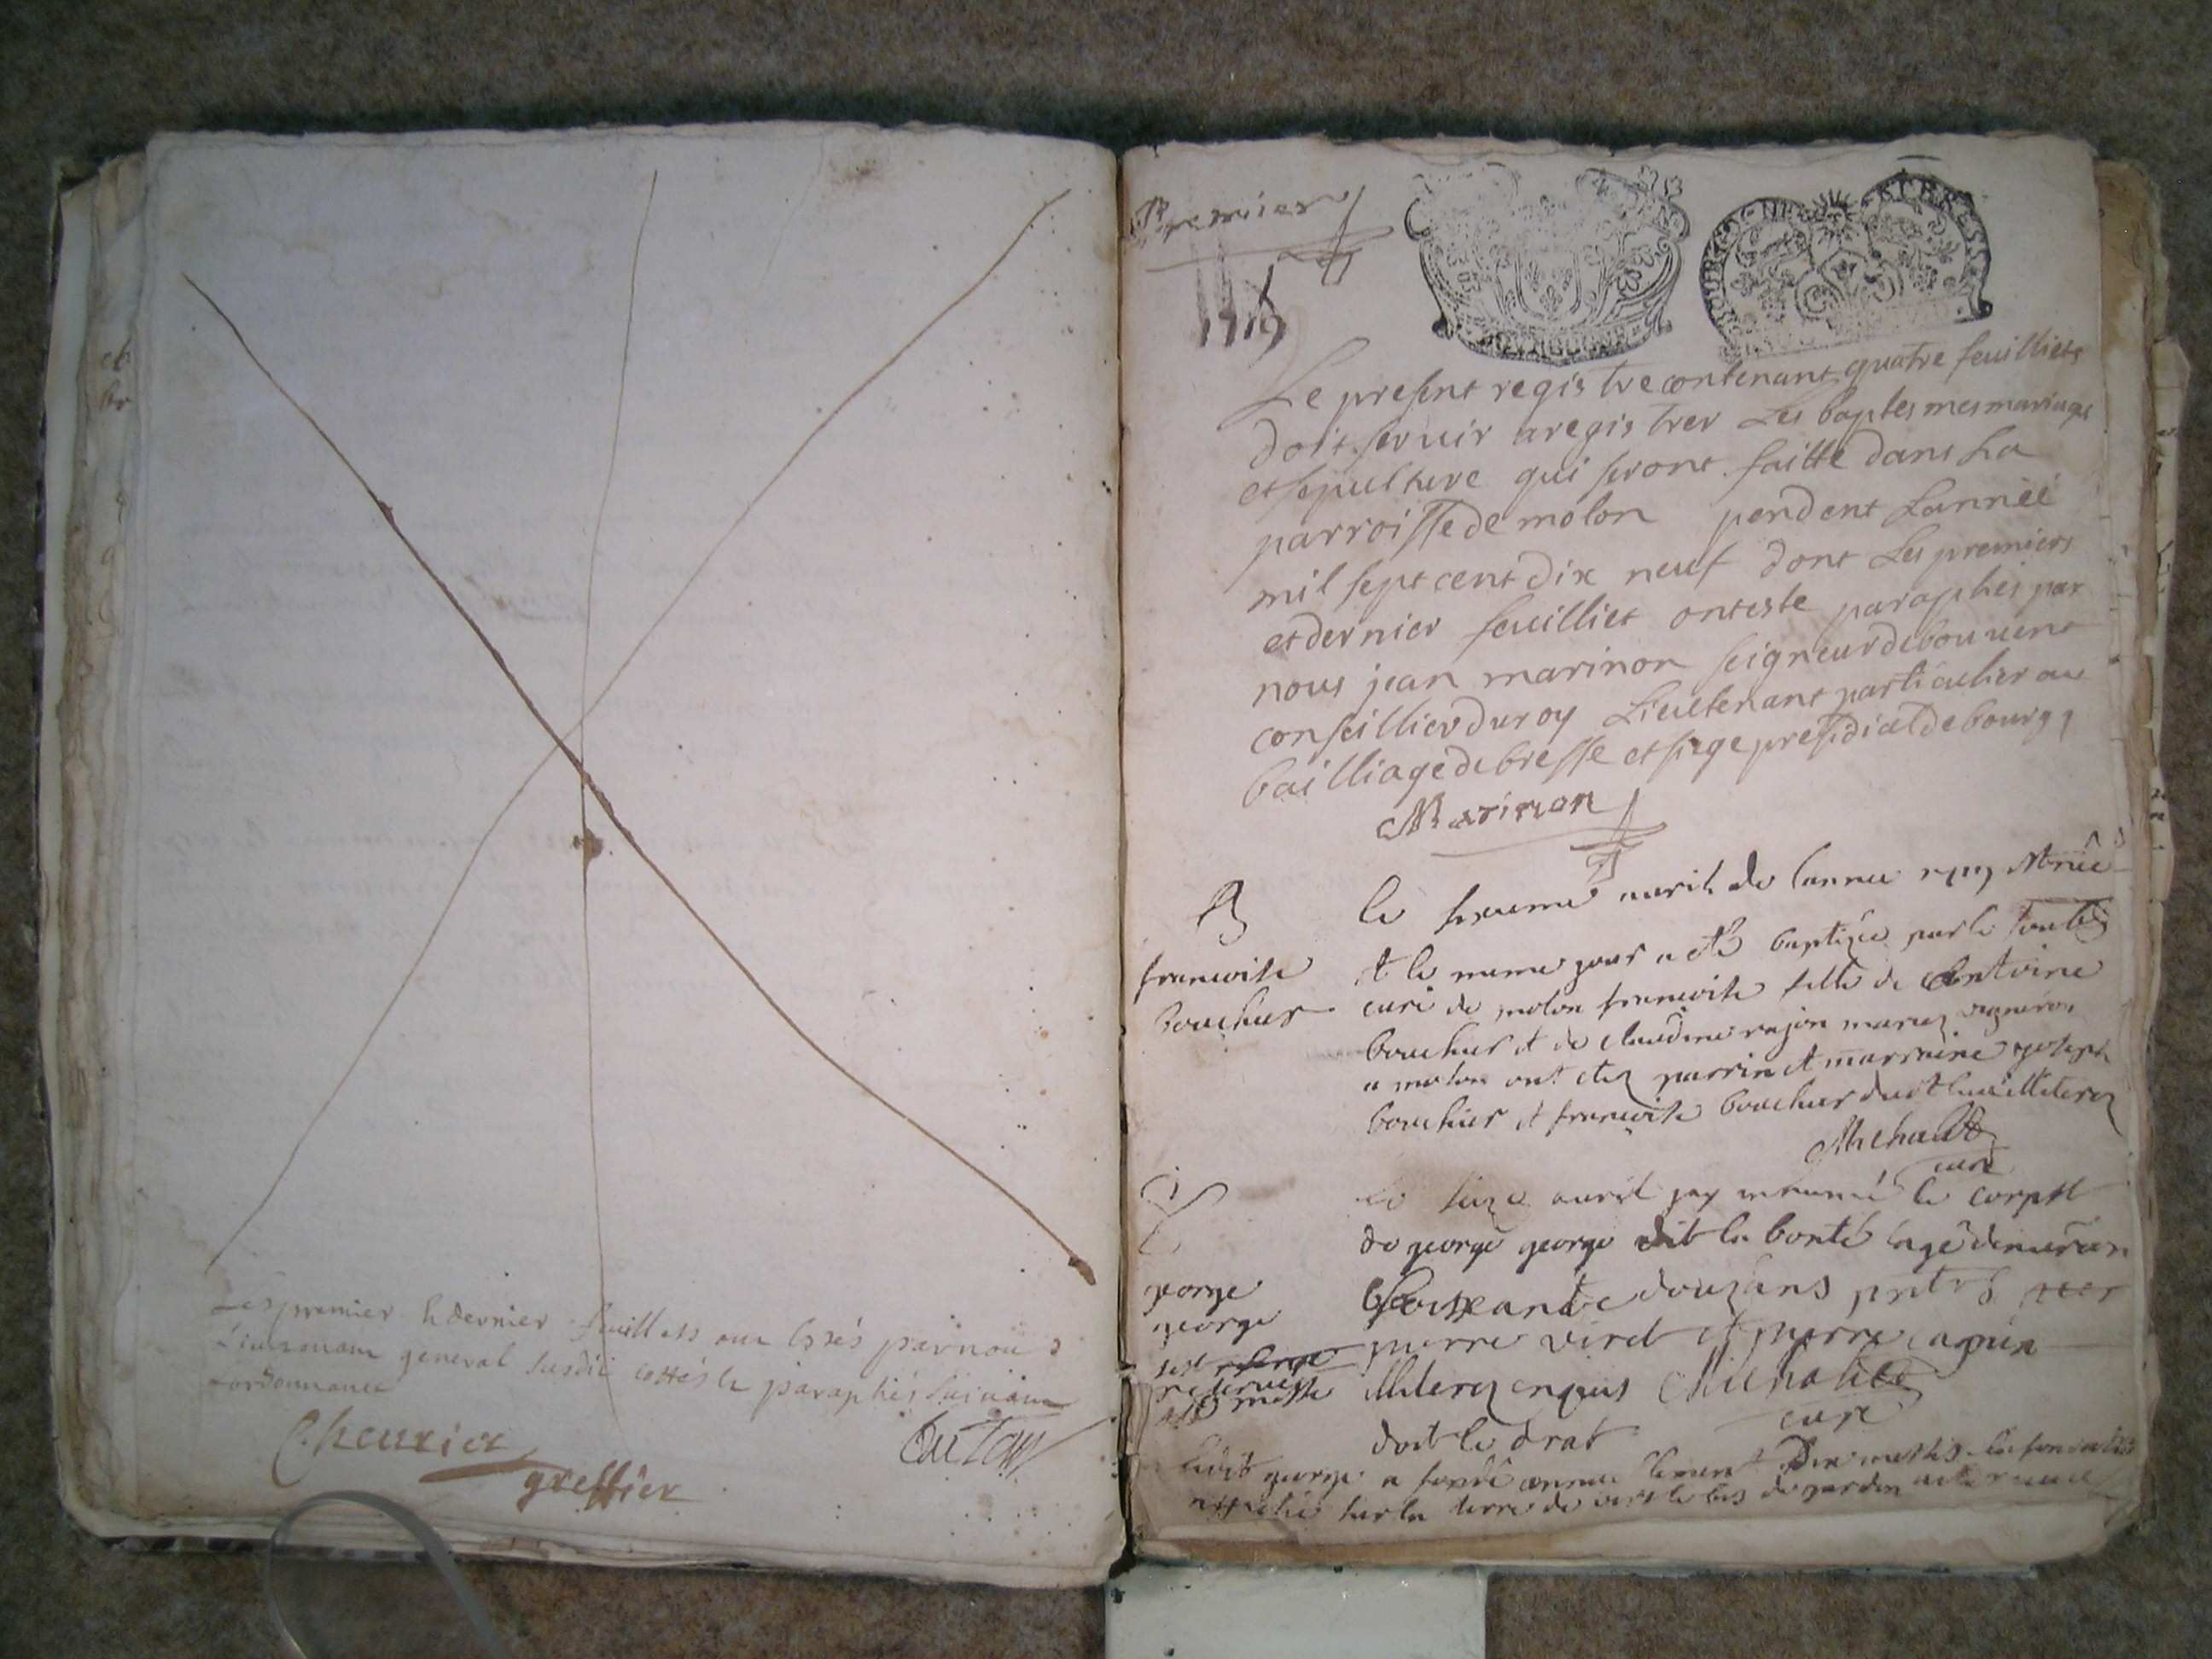 Les premier & dernier feuillets ont estés par nous
Lieutenant general susdit cottés & paraphés suivant
l'ordonnance
Cheurier
greffier
Premier
1719
Le present registre contenant quatre feuilliets
doit servir a registrer Les baptesmes mariages
et sepulture qui seront faitte dans La
parroisse de molon pendent Lanneé
mil sept cent dix neuf dont Les premiers
et dernier feuilliet onteste paraphes par
nous jean marinon seigneur de bouuent
conseillier du roy Lieutenant particulier au
bailliage de bresse et siege presidial de bourg
Marinon
B
francoise
bouchus
le avril de lannee 1719
et le meme jour a esté baptizée par le
curé de molon francoise fille de Antoine
bouchus et de claudine rajon mariez vigneron
a molon ont etez parrin et marraine joseph
bouchus et francoise bouchus illiterez
Michalet
curé
george
george
le seize avril jay inhumé le corps
de george george dit la bonté agé denviron
soixante douzans
pierre viret et pierre
illiterez enquis Michalet
curé
doit le drat
ledit george a fondé annuellement messes
sur la terre de